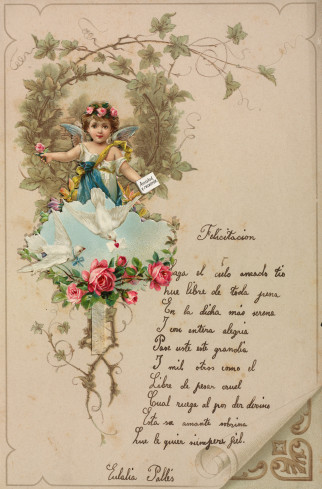 Felicitacion
aga el cielo amado tio
que libre de toda pena
En la dicha más serena
I con entera alegria
Pase usté este grandia
I mil otros como el
Libre de pesar cruel
Cual ruega al pos der divino
Esta su amante sobrina
Que le quier siempere fiel.
Eulalia Pallés